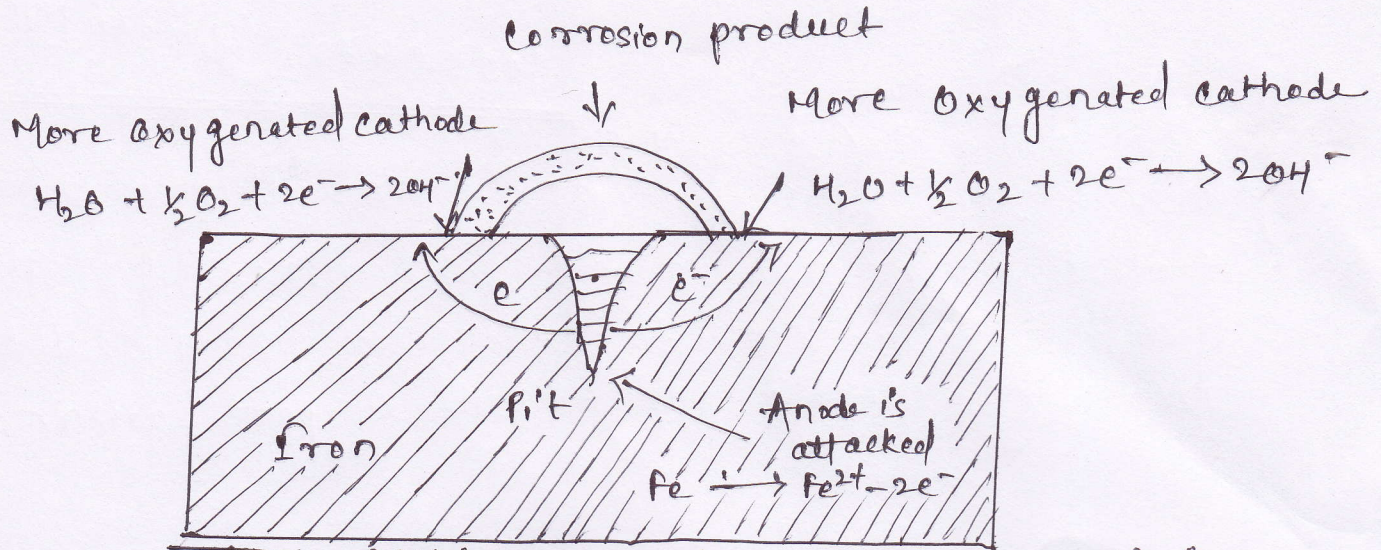 Corrosion product
More oxygenated cathode
H₂O + ½O₂ + 2e⁻ → 2OH⁻
More oxygenated cathode
H₂O + ½O₂ + 2e⁻ → 2OH⁻
e
e⁻
Pit
Iron
Anode is
attacked
Fe → Fe²⁺ - 2e⁻